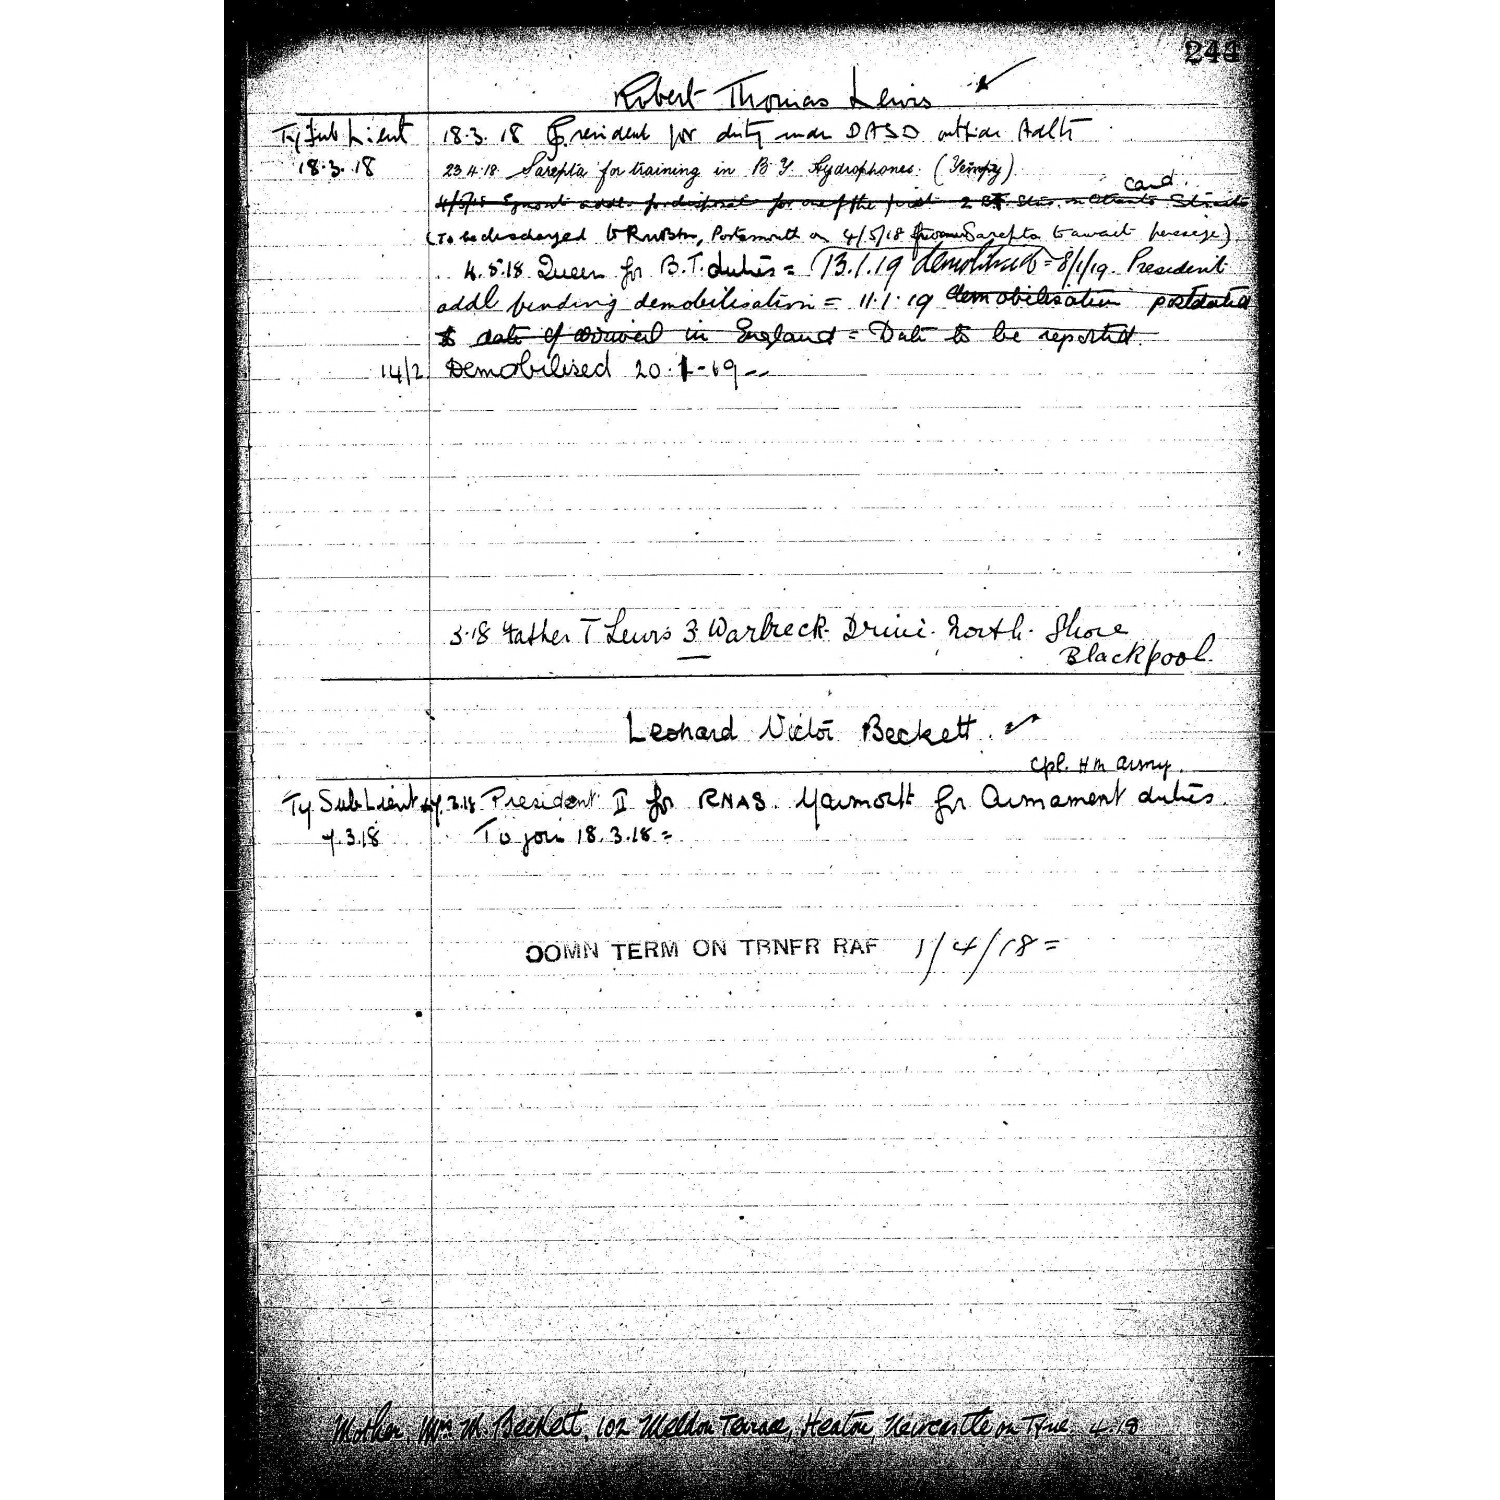 244
Robert Thomas Lewis
Ty Sub Lieut 18.3.18 President for duty under DASD outside Adlty
18.3.18 23.4.18 Sarepta for training in B.Y. Hydrophones. (Tempy)
cand.
4/5/18 Egmont addl. for disposal for one of the first 2 BT
(To be discharged to RNBks, Portsmouth on 4/5/18 from Sarepta to await passage)
4.5.18 Queen for B.T. duties = 13.1.19 demobilised = 8/1/19. President
addl pending demobilisation = 11.1.19 demobilisation postdated
to date of arrival in England = Date to be reported.
14/2 Demobilised 20.1.19
3.18 Father T Lewis 3 Warbreck Drive. North Shore
Blackpool.
Leonard Victor Beckett.
Cpl. H M Army.
Ty Sub Lieut 7.3.18 President II for RNAS. Yarmouth for Armament duties.
7.3.18 To join 18.3.18 =
COMN TERM ON TRNFR RAF 1/4/18 =
Mother, Mrs M. Beckett, 102 Meldon Terrace, Heaton, Newcastle on Tyne. 4.18